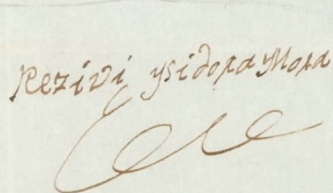 Rezivi ysidora Mora